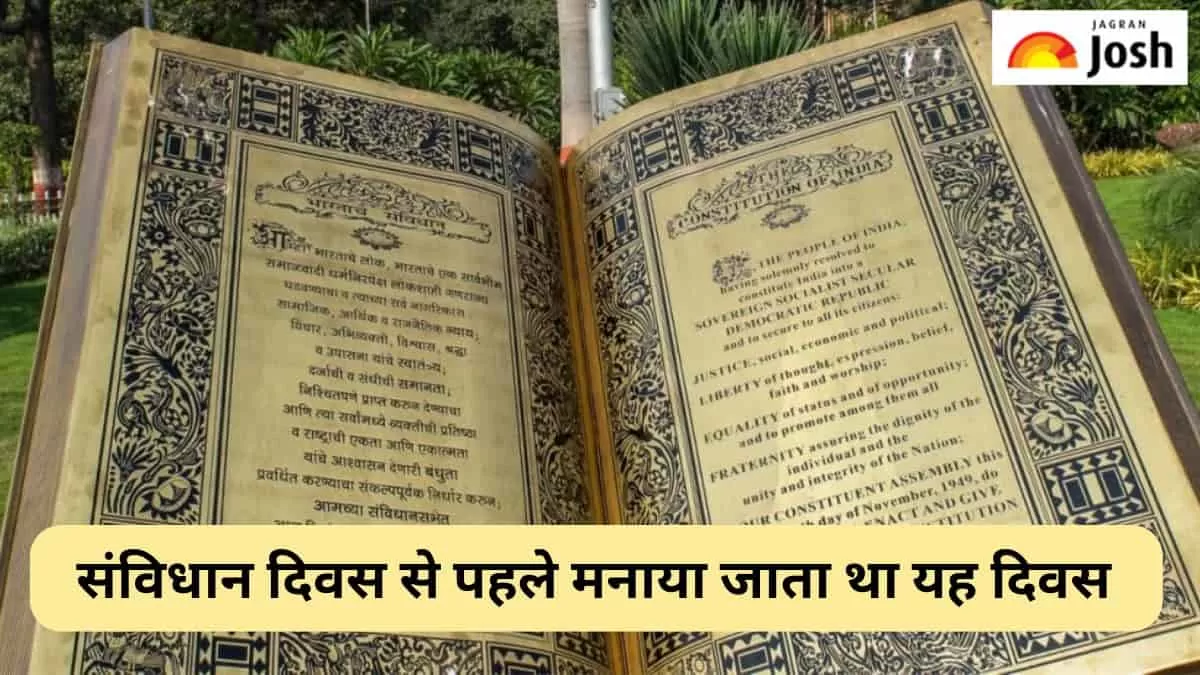 JAGRAN
Josh
भारताचं संविधान
आम्ही भारताचे लोक, भारताचे एक सार्वभौम
समाजवादी धर्मनिरपेक्ष लोकशाही गणराज्य
घडवण्याचा व त्याच्या सर्व नागरिकास
सामाजिक, आर्थिक व राजनैतिक न्याय;
विचार, अभिव्यक्ती, विश्वास, श्रद्धा
व उपासना यांचे स्वातंत्र्य;
दर्जाची व संधीची समानता;
निश्चितपणे प्राप्त करुन देण्याचा
आणि त्या सर्वांमध्ये व्यक्तीची प्रतिष्ठा
व राष्ट्राची एकता आणि एकात्मता
यांचे आश्वासन देणारी बंधुता
प्रवर्धित करण्याचा संकल्पपूर्वक निर्धार करुन;
आमच्या संविधानसभेत
THE
CONSTITUTION OF INDIA
WE, THE PEOPLE OF INDIA,
having solemnly resolved to
constitute India into a
SOVEREIGN SOCIALIST SECULAR
DEMOCRATIC REPUBLIC
and to secure to all its citizens:
JUSTICE, social, economic and political;
LIBERTY of thought, expression, belief,
faith and worship;
EQUALITY of status and of opportunity;
and to promote among them all
FRATERNITY assuring the dignity of the
individual and the
unity and integrity of the Nation;
OUR CONSTITUENT ASSEMBLY this
th day of November, 1949, do
ENACT AND GIVE
CONSTITUTION
संविधान दिवस से पहले मनाया जाता था यह दिवस